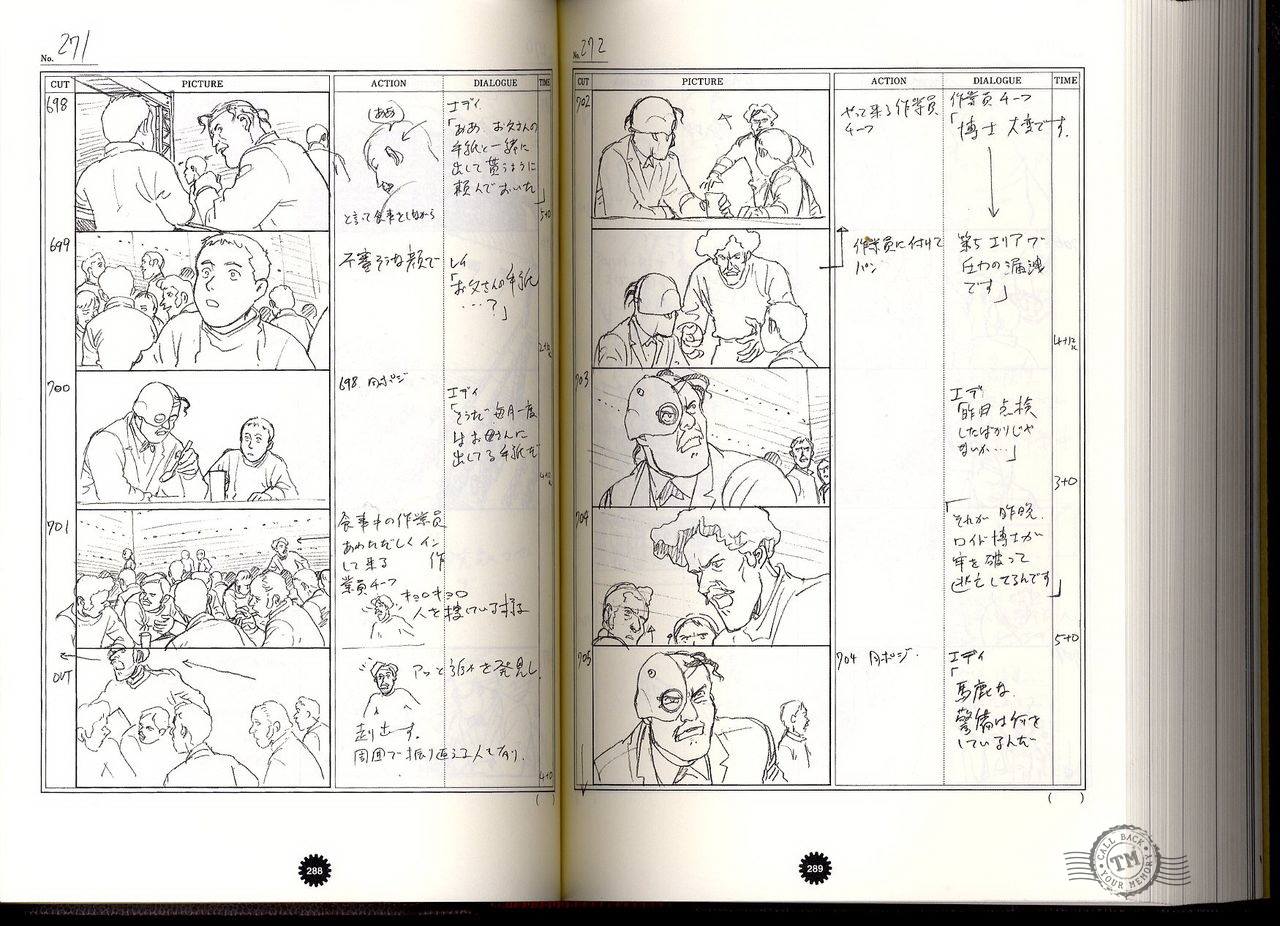 No. 271
CUT PICTURE ACTION DIALOGUE TIME
698
(ああ)
と言って食事をしながら
エディ
「ああ お父さんの
手紙と一緒に
出して貰うように
頼んでおいた」
5+0
699
不審そうな顔で
レイ
「お父さんの手紙
…?」
700
698 同ポジ
エディ
「そうだ 毎月一度
はお母さんに
出してる手紙だ
701
食事中の作業員
あわただしく イン
して来る 作
業員チーフ
キョロキョロ
人を捜している様子
OUT
アッと を発見し
走り出す。
周囲で振り返る人もあり.
4+0
( )
288
No. 272
CUT PICTURE ACTION DIALOGUE TIME
702
やって来る作業員
チーフ
作業員チーフ
「博士 大変です.
作業員に付けて
パン
第5エリアで
圧力の漏洩
です」
4+12
703
エディ
「昨日 点検
したばかりじゃ
ないか…」
3+0
704
「それが 昨晩.
ロイド博士が
牢を破って
逃亡してるんです」
5+0
705
704 同ポジ.
エディ
「
馬鹿な
警備は何を
しているんだ
( )
289
CALL BACK
TM
YOUR MEMORY